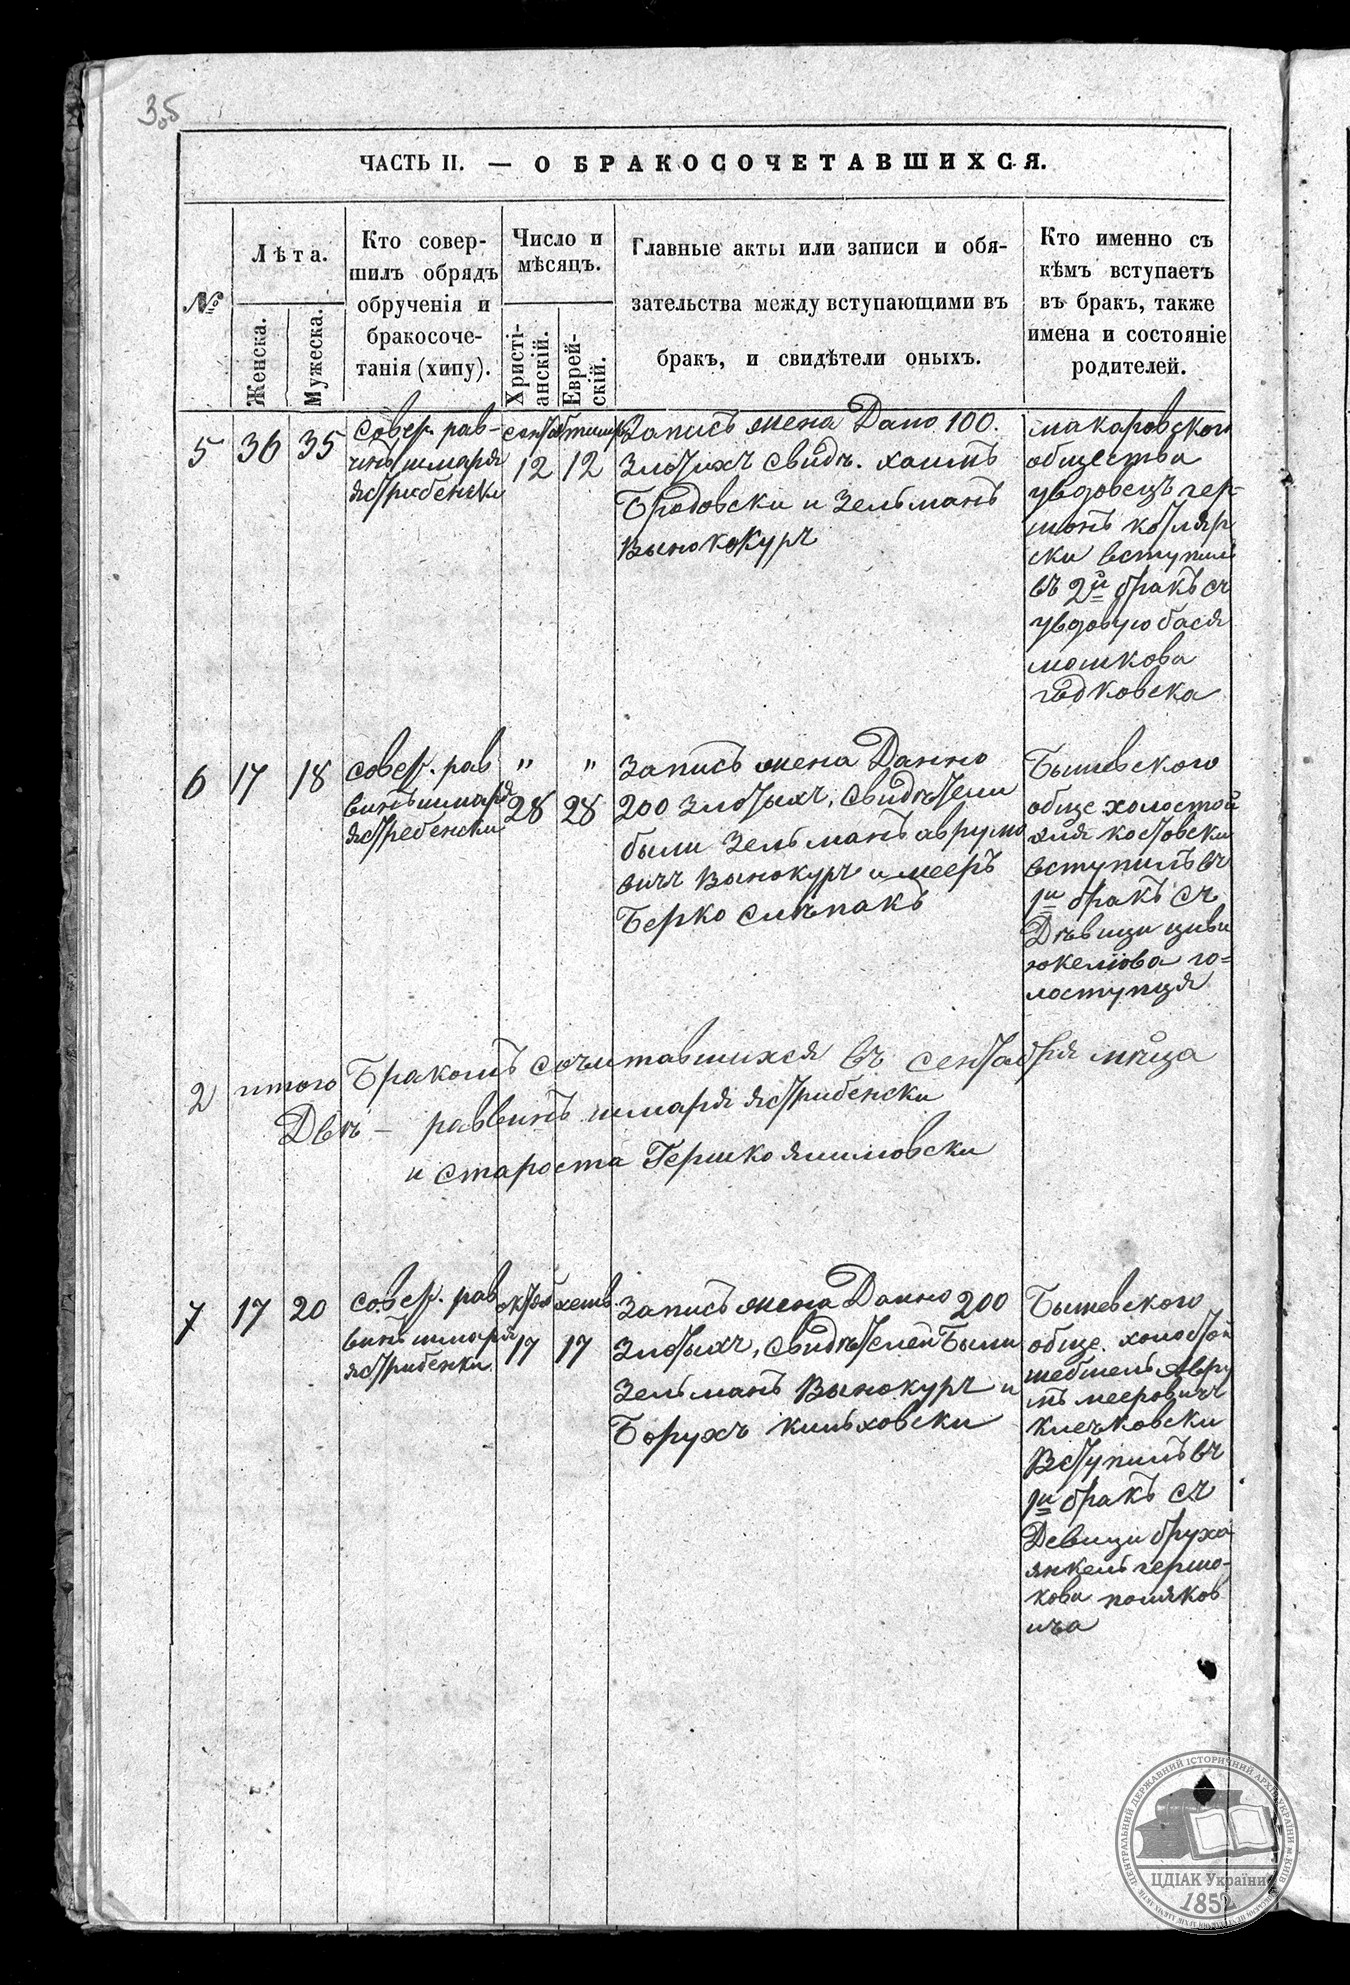 3об
ЧАСТЬ II. — О БРАКОСОЧЕТАВШИХСЯ.
№
Лѣта.
Женска.
Мужеска.
Кто совер-
шилъ обрядъ
обрученія и
бракосоче-
танія (хипу).
Число и
мѣсяцъ.
Христі-
анскій.
Еврей-
скій.
Главные акты или записи и обя-
зательства между вступающими въ
бракъ, и свидѣтели оныхъ.
Кто именно съ
кѣмъ вступаетъ
въ бракъ, также
имена и состояніе
родителей.
5 36 35
совер. рав-
инъ шмаря
ястребенски
12 12
Запись жена Дано 100.
Злотихъ свидѣ. хаимъ
Бродовски и Зельманъ
Винокуръ
макаровского
общества
увдовецъ гер-
шонъ котляр
ски вступил
въ 2й бракъ съ
увдовую бася
мошкова
гадковска
6 17 18
совер. рав
винъ шмаря
ястребенски
" "
28 28
Запись жена Данно
200 злотыхъ, свидѣтели
были Зельманъ аврумо
вичъ Винокуръ и мееръ
Берко слѣпакъ
Бышевского
обще. холостой
эля костовски
вступилъ въ
1й бракъ съ
Дѣвици циви
юкелiова го=
лоступця
2 итого Бракомъ сочитавшихся въ сентября мѣца
Двѣ — раввинъ шмаря ястрибенски
и староста Гершко
7 17 20
совер. рав
винъ шмаря
ястрибенки
октяб хешв.
17 17
Запись жена Данно 200
Злотыхъ, свидѣтелей Были
Зельманъ Винокуръ и
Борухъ кильховски
Бышевского
обще. холостой
шебшель Авру
мъ мееровичъ
клечковски
Вступилъ въ
1й бракъ съ
Девици бруха
янкель гершо-
кова поляков
ича
ЦЕНТРАЛЬНИЙ ДЕРЖАВНИЙ ІСТОРИЧНИЙ АРХІВ УКРАЇНИ м. КИЇВ
ЦДІАК України
1852